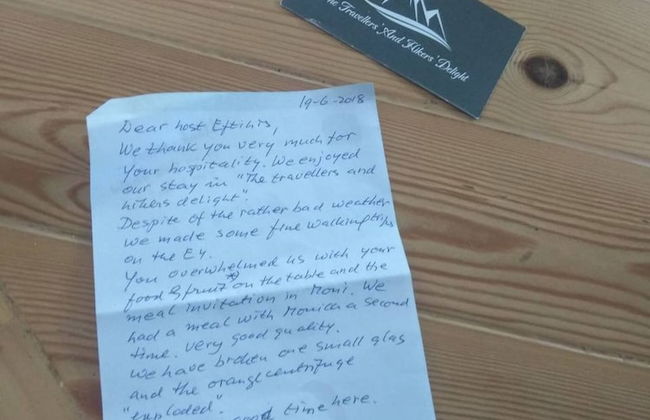 The Travellers' And Hikers' Delight
19-6-2018
Dear host Eftihis,
We thank you very much for
your hospitality. We enjoyed
our stay in "The travellers and
hikers delight".
Despite of the rather bad weather
we made some fine walkingtrips
on the E4.
You overwhelmed us with your
food & fruit on the table and the
meal invitation in Moni. We
had a meal with Monica a second
time. Very good quality.
We have broken one small glas
and the orangecentrifuge
"exploded".
good time here.